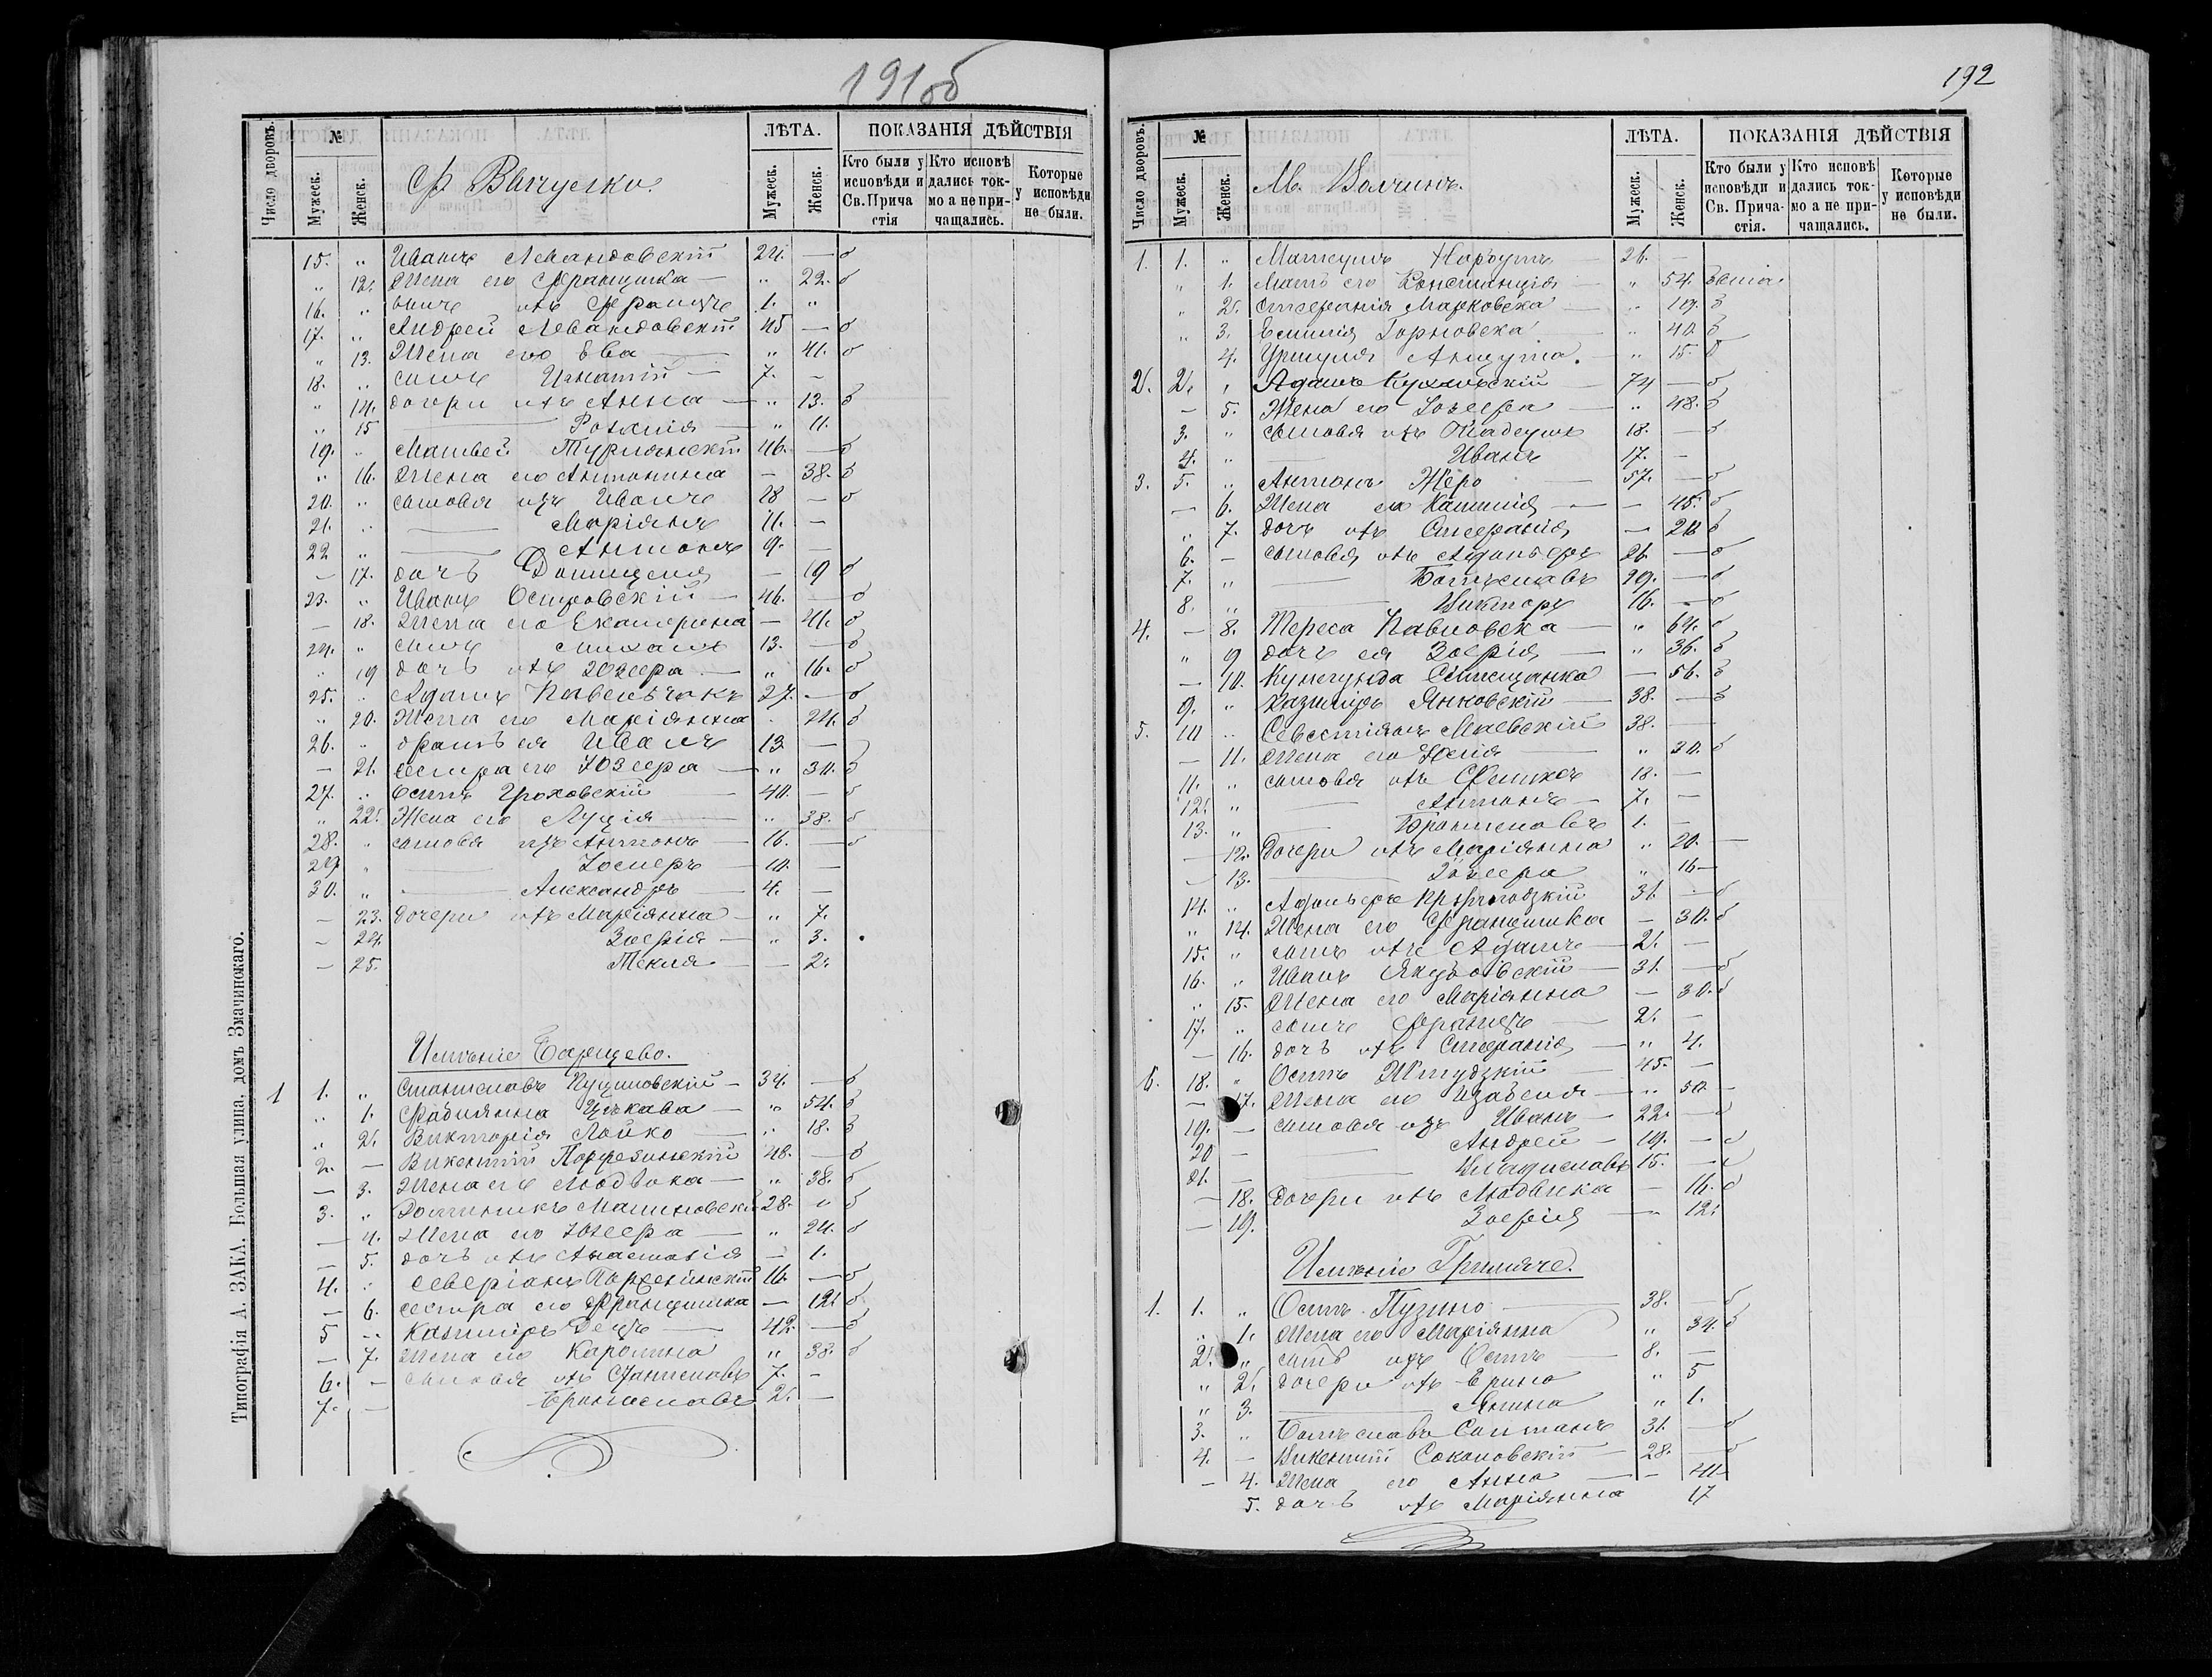 191об
Число дворовъ. № Мужеск. Женск. Ф. Вычулки. ЛѢТА. Мужеск. Женск. ПОКАЗАНІЯ ДѢЙСТВІЯ Кто были у исповѣди и Св. Прича стія Кто исповѣ дались ток- мо а не при- чащались. Которые у исповѣди не были.
15. " Иванъ Левандовскій 24. — б
" 12. Жена его Францишка — " 22. б
16. " сынъ ихъ Францъ 1. "
17. " Андрей Левандовскій 45 — б
" 13. Жена его Ева — " 41. б
18. " сынъ Игнатій — 7. —
" 14. дочери ихъ Анна — " 13. б
" 15 — Розалія — " 11.
19. " Матвей 46. — б
" 16. Жена его Антонина — 38. б
20. " сыновья ихъ Иванъ 18 — б
21. " — Маріянъ 11. —
22 " — Антонъ 9. —
— 17. дочь — 19 б
23. " Иванъ Островскій — 46. — б
— 18. Жена его Екатерина — 41. б
24. " сынъ Михалъ 13. — б
" 19 дочь ихъ Юзефа — " 16. б
25. " Адамъ Павельчакъ 27. — б
" 20. Жена его Маріянна " 24. б
26. " братъ ея Иванъ 13 —
— 21. Сестра его Юзефа — " 30. б
27. " Осипъ Гроховскій — 40. — б
" 22. Жена его Луція — " 38. б
28. " сыновья ихъ Антонъ — 16. — б
29 " — Іосифъ — 10. —
30. " — Александръ — 4. —
— 23. дочери ихъ Маріянна — " 7.
— 24. Зофія — " 3.
— 25. Текля — — 2.
Имѣніе Барщево.
1 1. " Станиславъ — 34. — б
" 1. Фабіянна — " 54. б
" 2. Викторія Лойко — " 18. б
2. — Викентій 48. — б
— 3. Жена его Людвика — " 38. б
3. " Доминикъ Малиновскій 28. " б
— 4. Жена его Юзефа — " 24. б
— 5. дочь ихъ Анастасія — 1.
4. " Северіанъ 16. — б
— 6. сестра его Францишка — 12. б
5 — Казиміръ — 42. — б
— 7. Жена его Каролина " 38. б
6. — сыновья ихъ Станиславъ 7. —
7. — Брониславъ 2. —
Типографія А. ЗАКА. Большая улица, домъ Значинскаго.
192
Число дворовъ. № Мужеск. Женск. М. Волчинъ. ЛѢТА. Мужеск. Женск. ПОКАЗАНІЯ ДѢЙСТВІЯ Кто были у исповѣди и Св. Прича- стія. Кто исповѣ дались ток- мо а не при- чащались. Которые у исповѣди не были.
1. 1. " 26. —
" 1. Мать его Констанція — " 54.
" 2. Стефанія Марковска — " 19. б
" 3. Емилія Горновска — " 40. б
" 4. Уршуля Анцута. — " 15. б
2. 2. " Адамъ 74 — б
— 5. Жена его Іозефа — " 48. б
3. " сыновья ихъ Тадеушъ 18. — б
4. " — Иванъ 17. —
3. 5. " Антонъ Жеро — 57. — б
— 6. Жена его — — 45. б
" 7. дочь ихъ Стефанія — 20 б
6. — сыновья ихъ Адольфъ 26 — б
7. " — Болеславъ 19. — б
8. " — Викторъ 16. — б
4. — 8. Тереса Павловска — " 64. б
" 9 дочь ея Зофія — " 36. б
— 10. Кунегунда — 56. б
9. " Казиміръ Янковскій — 38. — б
5. 10 " Севестіянъ Маевскій 38. —
— 11. Жена его — " 30. б
11. " сыновья ихъ Феликсъ 18. —
12. " — Антонъ — 7. —
13. " — Брониславъ 1. —
— 12. Дочери ихъ Маріянна " 20. —
— 13. — Іозефа " 16 —
14. " Адольфъ 31. — б
" 14. Жена его Францишка — 30. б
15. " сынъ ихъ Адамъ — 2. —
16. " Иванъ — 31. — б
" 15. Жена его Маріянна — 30. б
17. " сынъ Францъ — 2. —
— 16. дочь ихъ Стефанія — " 4.
6. 18. " Осипъ — 45. —
— 17. Жена его Изабеля — " 50. —
19. — сыновья ихъ Иванъ — 22. — б
20 — — Андрей — 19. — б
21. — — Владиславъ 15. — б
— 18. Дочери ихъ Людвика — 16. б
— 19. Зофія — " 12.
Имѣніе Гримяче.
1. 1. " Осипъ Пузино — 38. — б
" 1. Жена его Маріянна " 34. б
2. " сынъ ихъ Осипъ — 8. —
" 2. дочери ихъ Ирина " 5
" 3. — Янина " 1.
3. " Болеславъ Солтанъ 31. — б
4. — Викентій Соколовскій — 28. — б
— 4. Жена его Анна — — 41 —
5. дочь ихъ Маріянна 17